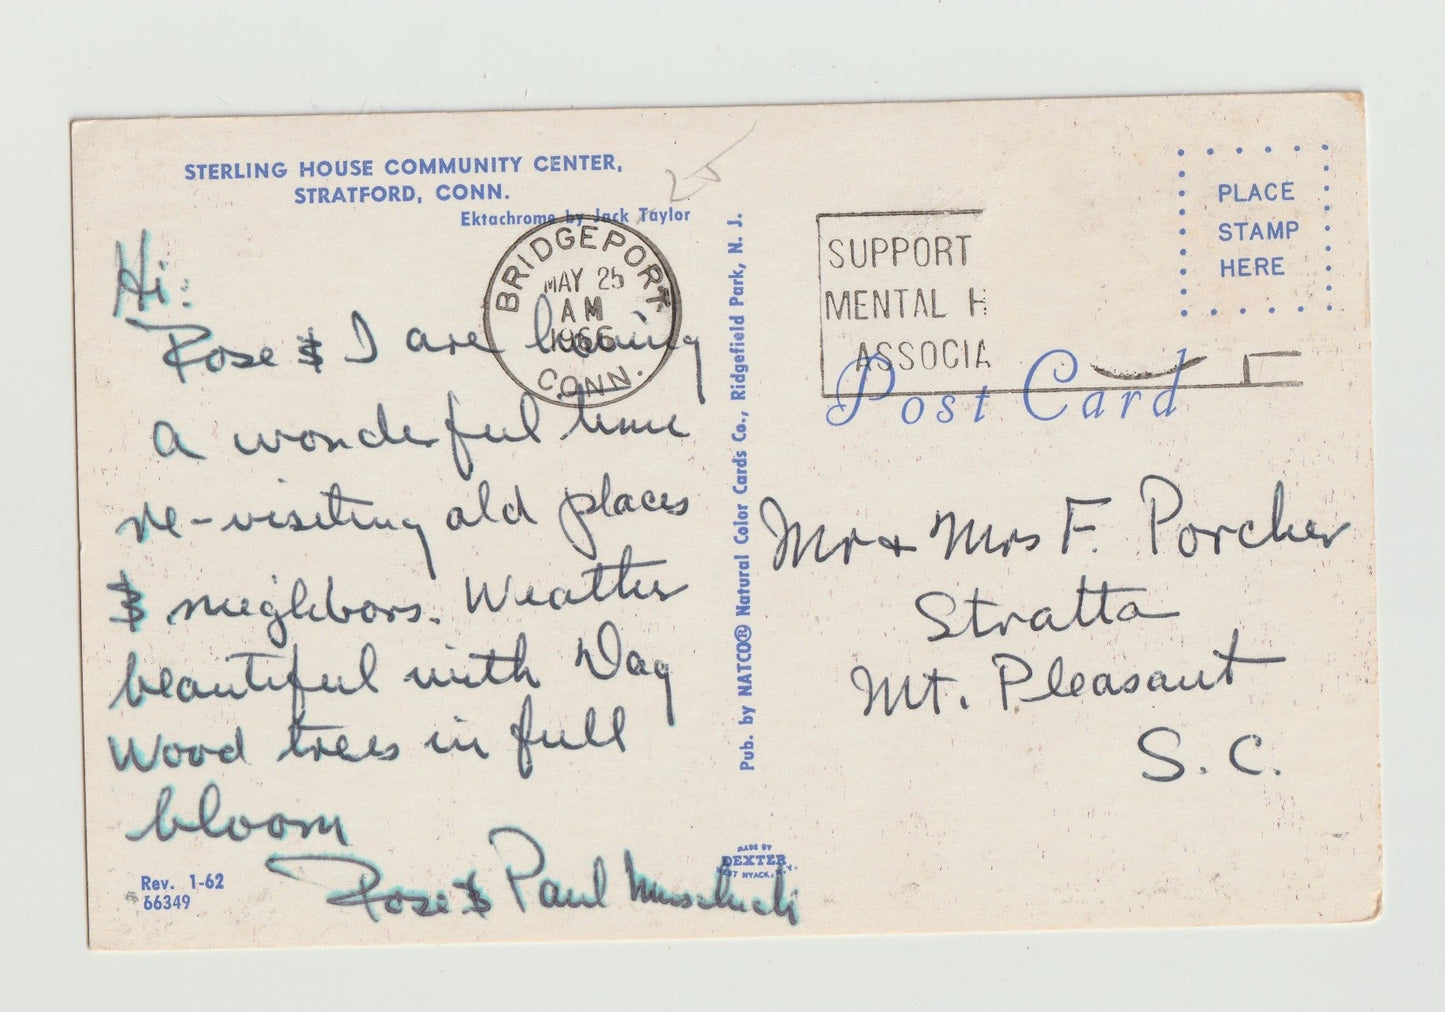 STERLING HOUSE COMMUNITY CENTER,
STRATFORD, CONN.
Ektachrome by Jack Taylor
25
BRIDGEPORT
MAY 25
AM
1966
CONN.
Hi:
Rose & I are having
a wonderful time
re-visiting old places
& neighbors. Weather
beautiful with Dog
Wood trees in full
bloom
Rose & Paul
Rev. 1-62
66349
Pub. by NATCO® Natural Color Cards Co., Ridgefield Park, N. J.
MADE BY
DEXTER
WEST NYACK, N.Y.
SUPPORT
MENTAL H
ASSOCIA
PLACE
STAMP
HERE
Post Card
Mr + Mrs F. Porcher
Stratta
Mt. Pleasant
S. C.